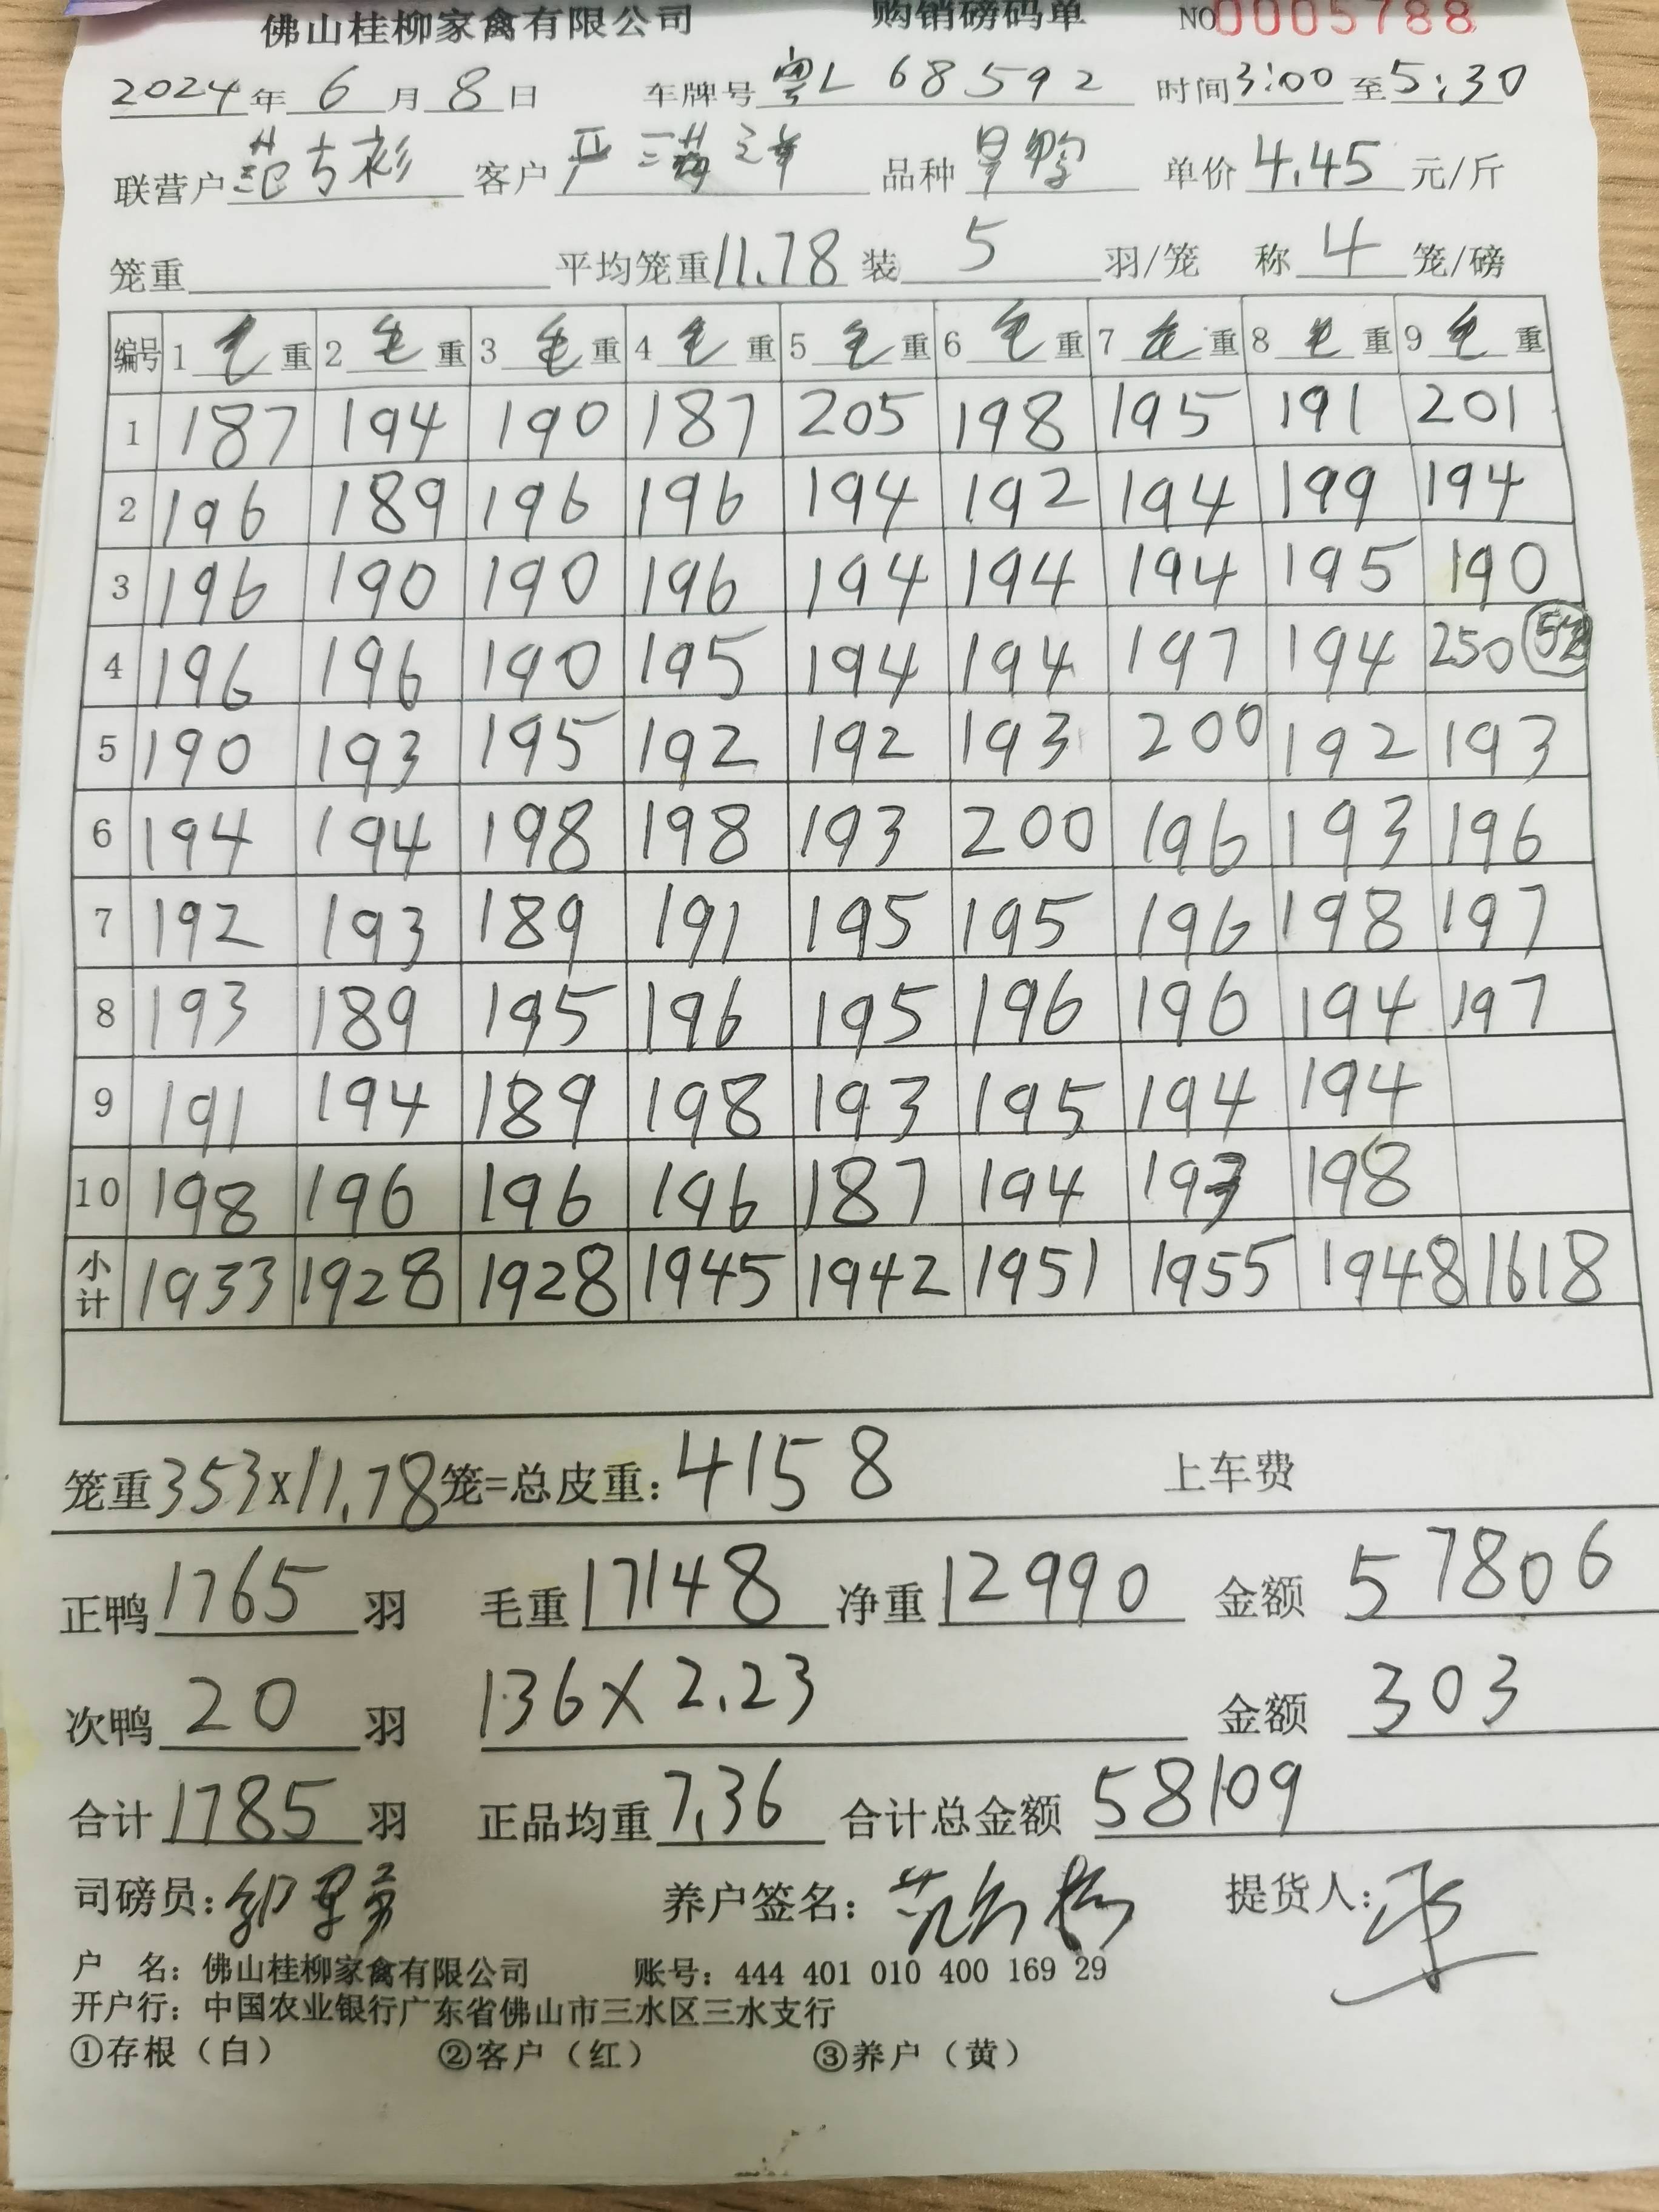 佛山桂柳家禽有限公司 购销磅码单 NO0005788
2024年 6 月 8 日 车牌号 粤L 68592 时间3:00至5:30
联营户 范 衫 客户 严 品种 单价 4.45 元/斤
笼重 平均笼重11.78 装 5 羽/笼 称 4 笼/磅
编号 1 毛 重 2 毛 重 3 毛 重 4 毛 重 5 毛 重 6 毛 重 7 毛 重 8 毛 重 9 毛 重
1 187 194 190 187 205 198 195 191 201
2 196 189 196 196 194 192 194 199 194
3 196 190 190 196 194 194 194 195 190
4 196 196 190 195 194 194 197 194 250
5 190 193 195 192 192 193 200 192 193
6 194 194 198 198 193 200 196 193 196
7 192 193 189 191 195 195 196 198 197
8 193 189 195 196 195 196 196 194 197
9 191 194 189 198 193 195 194 194
10 198 196 196 196 187 194 193 198
小计 1933 1928 1928 1945 1942 1951 1955 1948 1618
笼重353x11.78笼=总皮重: 4158 上车费
正鸭 1765 羽 毛重 17148 净重 12990 金额 57806
次鸭 20 羽 136 X 2.23 金额 303
合计 1785 羽 正品均重 7.36 合计总金额 58109
司磅员: 养户签名: 提货人:
户 名: 佛山桂柳家禽有限公司 账号: 444 401 010 400 169 29
开户行: 中国农业银行广东省佛山市三水区三水支行
①存根（白） ②客户（红） ③养户（黄）